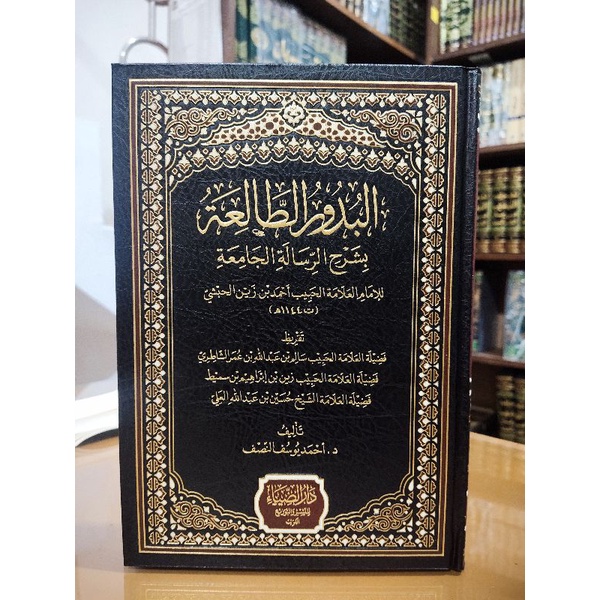 البُدُورُ الطَّالِعَةُ
بِشَرْحِ الرِّسَالَةِ الجَامِعَةِ
للإمام العلامة الحبيب أحمد بن زين الحبشي
(ت ١١٤٤هـ)
تقريظ
فضيلة العلامة الحبيب سالم بن عبدالله بن عمر الشاطري
فضيلة العلامة الحبيب زين بن إبراهيم بن سميط
فضيلة العلامة الشيخ حسين بن عبدالله العلي
تأليف
د. أحمد يوسف النصف
دار الضياء
للنشر والتوزيع
الكويت